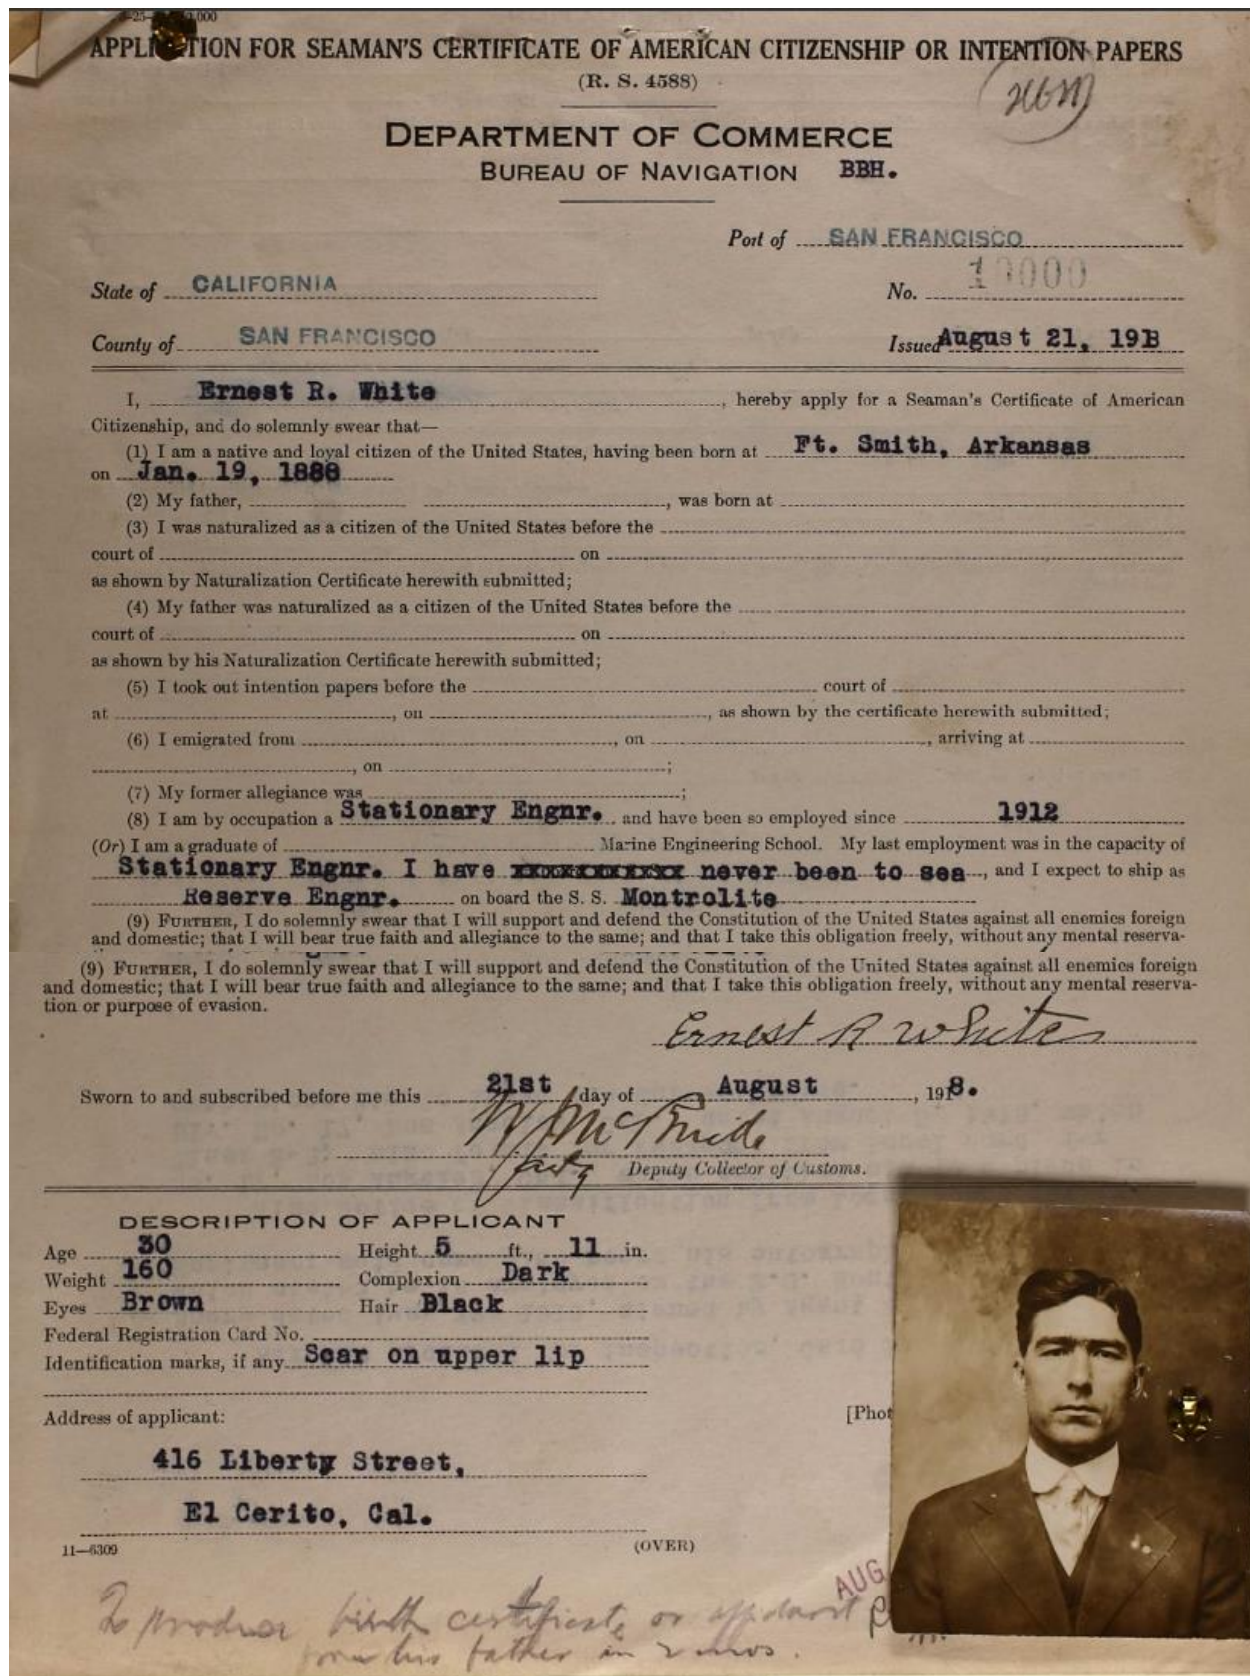 -25- 000
APPLI TION FOR SEAMAN'S CERTIFICATE OF AMERICAN CITIZENSHIP OR INTENTION PAPERS
(R. S. 4588)
DEPARTMENT OF COMMERCE
BUREAU OF NAVIGATION BBH.
Port of SAN FRANCISCO
State of CALIFORNIA No. 10000
County of SAN FRANCISCO Issued August 21, 1918
I, Ernest R. White, hereby apply for a Seaman's Certificate of American
Citizenship, and do solemnly swear that—
(1) I am a native and loyal citizen of the United States, having been born at Ft. Smith, Arkansas
on Jan. 19, 1888
(2) My father, , was born at
(3) I was naturalized as a citizen of the United States before the
court of on
as shown by Naturalization Certificate herewith submitted;
(4) My father was naturalized as a citizen of the United States before the
court of on
as shown by his Naturalization Certificate herewith submitted;
(5) I took out intention papers before the court of
at , on , as shown by the certificate herewith submitted;
(6) I emigrated from , on , arriving at
, on ;
(7) My former allegiance was ;
(8) I am by occupation a Stationary Engnr. and have been so employed since 1912
(Or) I am a graduate of Marine Engineering School. My last employment was in the capacity of
Stationary Engnr. I have xxxxxxxxxxxx never been to sea, and I expect to ship as
Reserve Engnr. on board the S. S. Montrolite
(9) FURTHER, I do solemnly swear that I will support and defend the Constitution of the United States against all enemies foreign
and domestic; that I will bear true faith and allegiance to the same; and that I take this obligation freely, without any mental reserva-
(9) FURTHER, I do solemnly swear that I will support and defend the Constitution of the United States against all enemies foreign
and domestic; that I will bear true faith and allegiance to the same; and that I take this obligation freely, without any mental reserva-
tion or purpose of evasion.
Ernest R White
Sworn to and subscribed before me this 21st day of August, 1918.
W McBride
Deputy Collector of Customs.
DESCRIPTION OF APPLICANT
Age 30 Height 5 ft., 11 in.
Weight 160 Complexion Dark
Eyes Brown Hair Black
Federal Registration Card No.
Identification marks, if any Scar on upper lip
Address of applicant: [Phot
416 Liberty Street,
El Cerito, Cal.
11—6309 (OVER)
AUG
To produce birth certificate or affidavit
from his father in 2 mos.